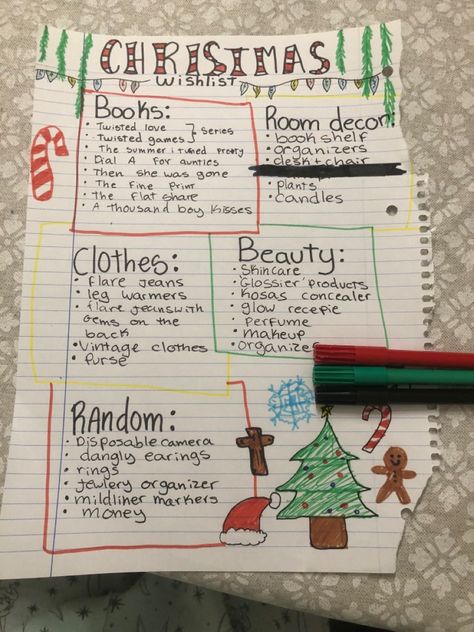 CHRISTMAS
wishlist
Books:
• Twisted love
• Twisted games
series
• The summer i turned pretty
• Dial A for aunties
• Then she was gone
• The Fine Print
• The flat share
• A thousand boy kisses
Room decor:
• book shelf
• organizers
• desk + chair
• plants
• candles
Clothes:
• flare jeans
• leg warmers
• flare jeans with
Gems on the
back
• Vintage clothes
• Purse
Beauty:
• Skincare
• 'Glossier' products
• Kosas concealer
• glow recepie
• perfume
• makeup
• organizer
RAndom:
• Disposable camera
• dangly earings
• rings
• jewlery organizer
• mildliner markers
• money